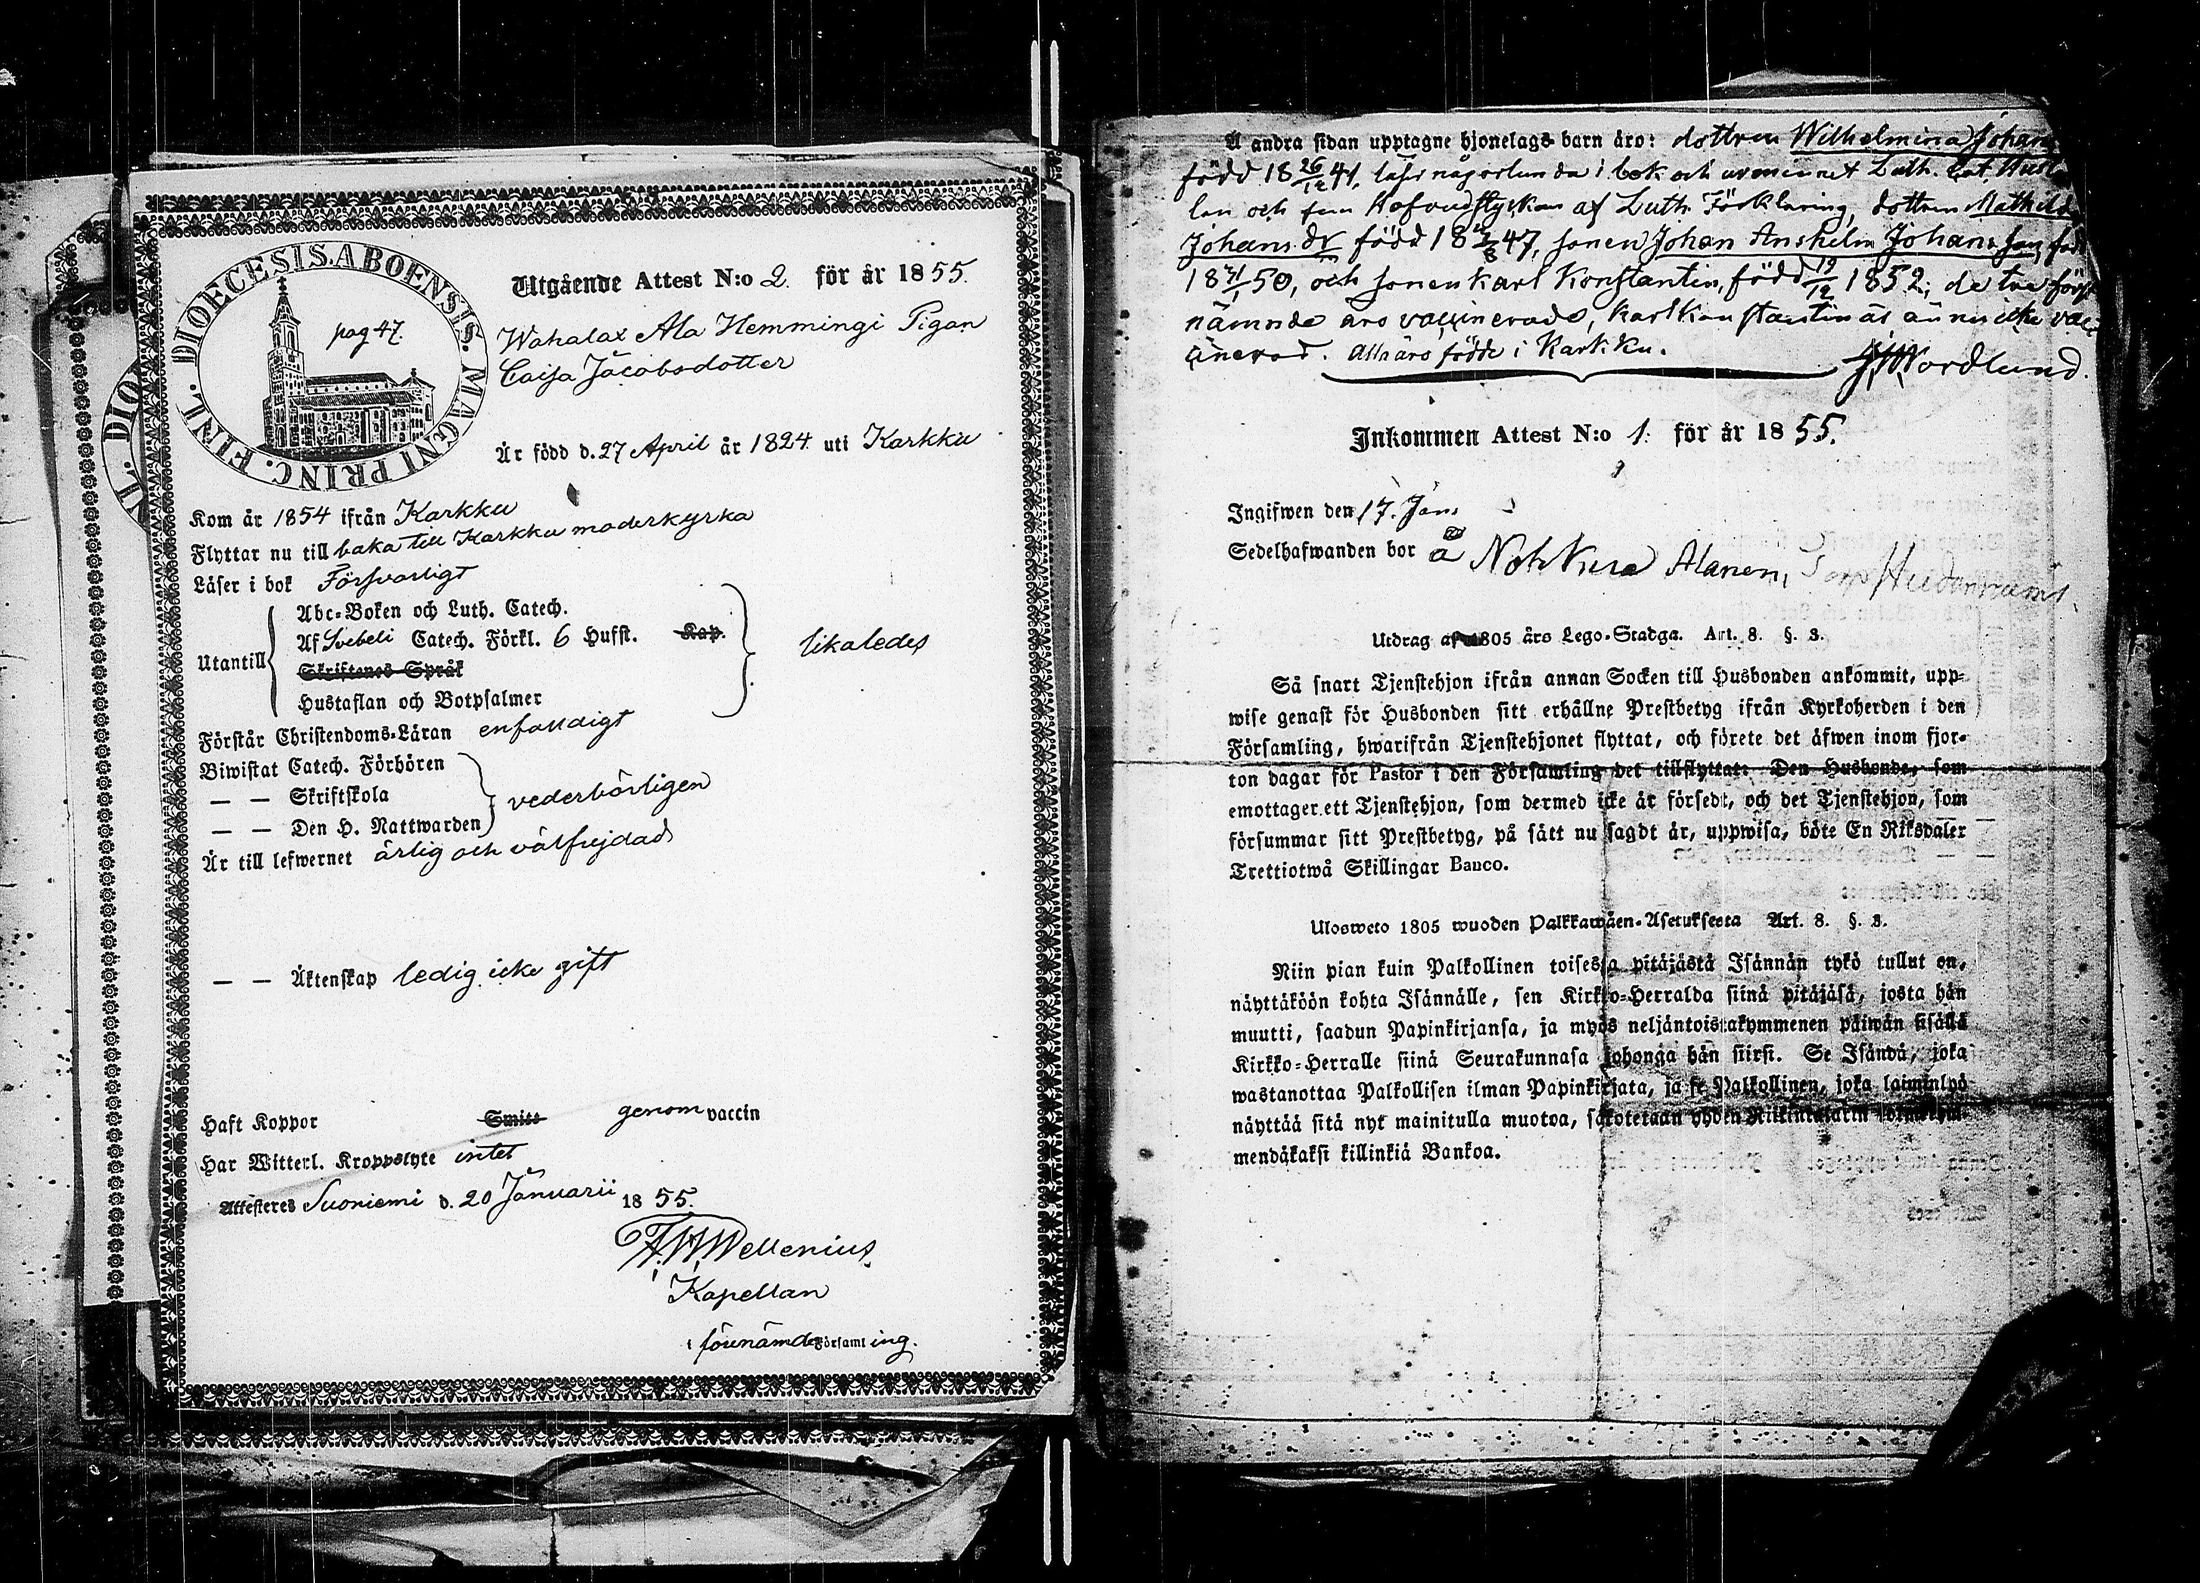 DIOECESIS ABOENSIS. MAGNI PRINC. FINL.
pag 47.
Utgående Attest N:o 2. för år 1855.
Wahalax Ala Hemmingi Pigan
Caisa Jacobsdotter
Är född d. 27 April år 1824 uti Karkku
Kom år 1854 ifrån Karkku
Flyttar nu till baka till Karkku moderkyrka
Läser i bok Försvarligt
Utantill
Abc-Boken och Luth. Catech.
Af Svebeli Catech. Förkl. 6 Hufst. Kap.
Skriftenes Språk
Hustaflan och Botpsalmer
likaledes
Förstår Christendoms-Läran enfaldigt
Biwistat Catech. Förhören
— — Skriftskola
— — Den H. Nattwarden
vederbörligen
Är till lefwernet ärlig och välfrejdad
— — Äktenskap ledig icke gift
Haft Koppor Smitt genom vaccin
Har Witterl. Kroppslyte intet
Attesteres Suoniemi d. 20 Januarii 1855.
Wellenius
Kapellan
i förenämde Församling.
Å andra sidan upptagne hjonelags barn äro: dottren Wilhelmina Johans
född 18 26/12 41, läser någorlunda i bok och ur minnet Luth. Cat. Husta
lan och fem Hofvudstycken af Luth. Förklaring, dottren Mathilda
Johans dr född 18 /8 47, sonen Johan Anshelm Johansson, född
18 /1 50, och sonen Karl Konstantin, född 19/12 1852; de tre först
nämnde äro vaccinerade, Karl Konstantin är ännu icke vac
cinerad. Alla äro födde i Karkku.
Nordlund.
Inkommen Attest N:o 1. för år 1855.
Ingifwen den 17. Jan.
Sedelhafwanden bor å Nohkua Alanen,
Utdrag af 1805 års Lego-Stadga. Art. 8. §. 3.
Så snart Tjenstehjon ifrån annan Socken till Husbonden ankommit, upp-
wise genast för Husbonden sitt erhållne Prestbetyg ifrån Kyrkoherden i den
Församling, hwarifrån Tjenstehjonet flyttat, och förete det äfwen inom fjor-
ton dagar för Pastor i den Församling det tillflyttat. Den Husbonde, som
emottager ett Tjenstehjon, som dermed icke är försedt, och det Tjenstehjon, som
försummar sitt Prestbetyg, på sätt nu sagdt är, uppwisa, böte En Riksdaler
Trettiotwå Skillingar Banco.
Ulosweto 1805 wuoden Palkkawäen-Asetuksesta Art. 8. §. 3.
Niin pian kuin Palkollinen toisesta pitäjästä Isännän tykö tullut on,
näyttäköön kohta Isännälle, sen Kirkko-Herralda siinä pitäjäsä, josta hän
muutti, saadun Papinkirjansa, ja myös neljäntoistakymmenen päiwän sisällä
Kirkko-Herralle siinä Seurakunnasa johonga hän siirsi. Se Isändä, joka
wastanottaa Palkollisen ilman Papinkirjata, ja se Palkollinen, joka laiminlyö
näyttää sitä nyt mainitulla muotoa, sakotetaan yhden Riikintalarin kolmekym-
mendäkaksi killinkiä Bankoa.